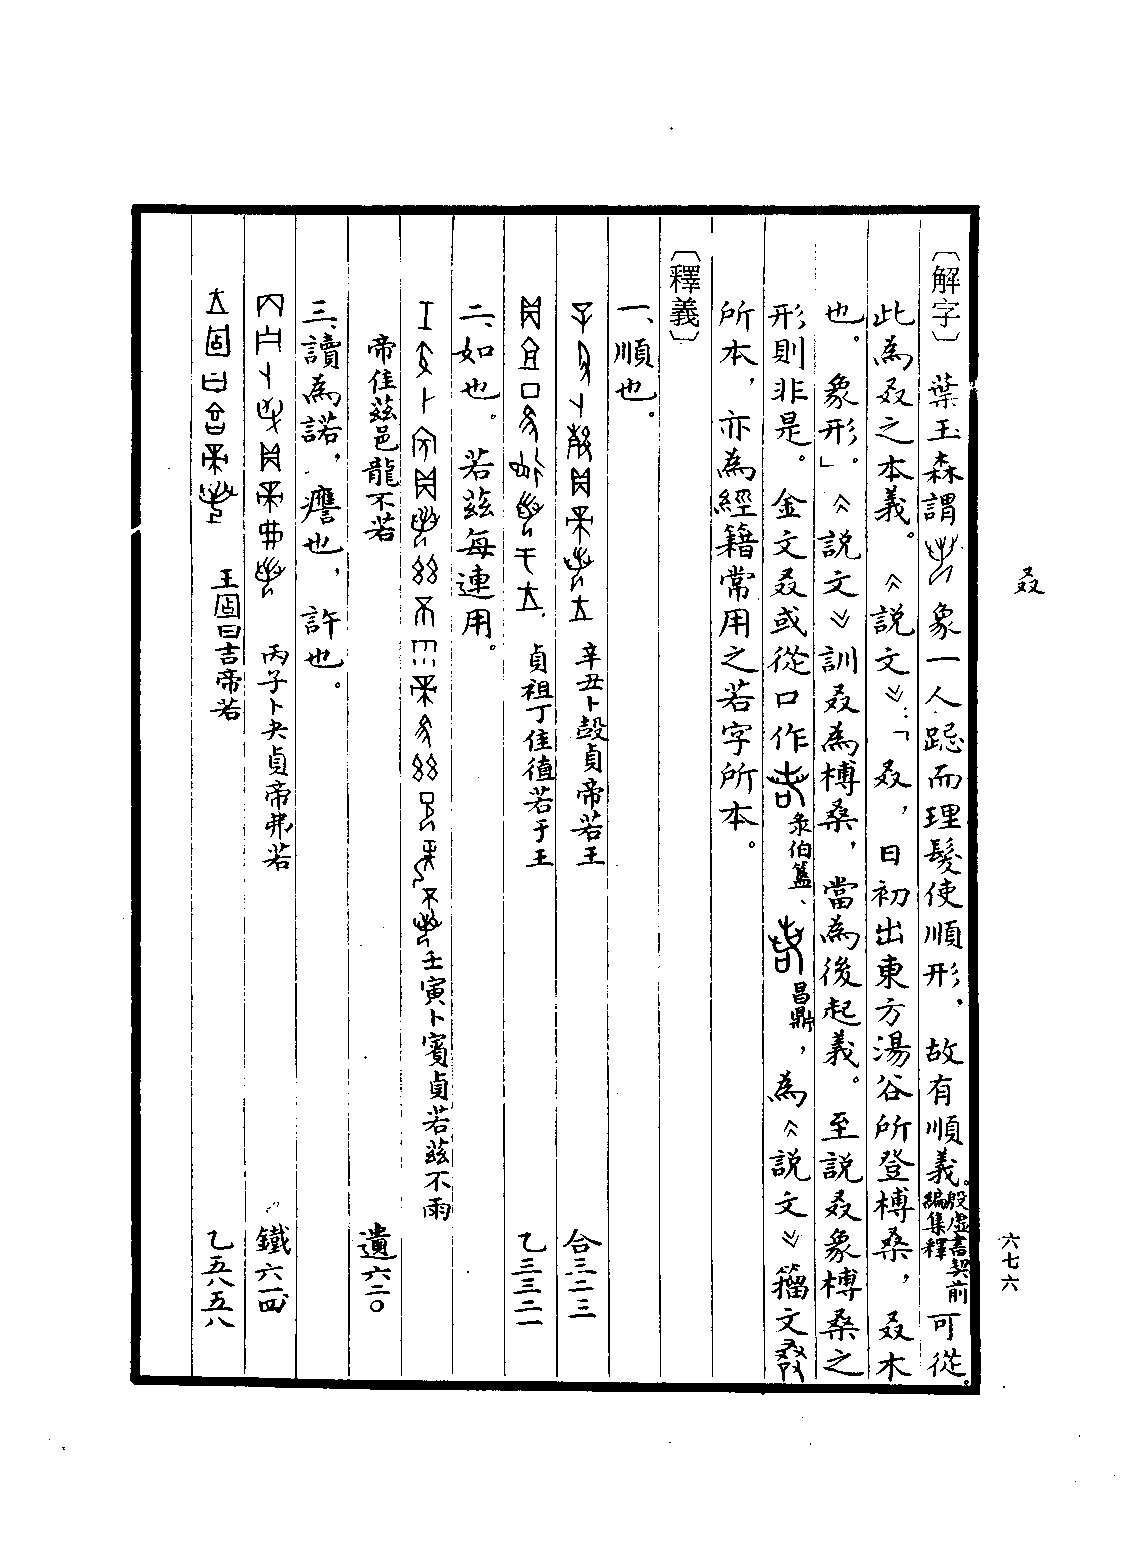 叒
六七六
〔解字〕葉玉森謂象一人跽而理髮使順形,故有順義。殷虛書契前編集釋可從。
此為叒之本義。《說文》:「叒,日初出東方湯谷所登榑桑,叒木
也。象形。」《說文》訓叒為榑桑,當為後起義。至說叒象榑桑之
形則非是。金文叒或從口作彔伯簋、曶鼎,為《說文》籀文
所本,亦為經籍常用之若字所本。
〔釋義〕
一、順也。
辛丑卜㱿貞帝若王 合三二三
貞祖丁隹徝若于王 乙三三二一
二、如也。若茲每連用。
壬寅卜賓貞若茲不雨
帝隹茲邑龍不若 遺六二〇
三、讀為諾,譍也,許也。
丙子卜夬貞帝弗若 鐵六一四
王固曰吉帝若 乙五八五八